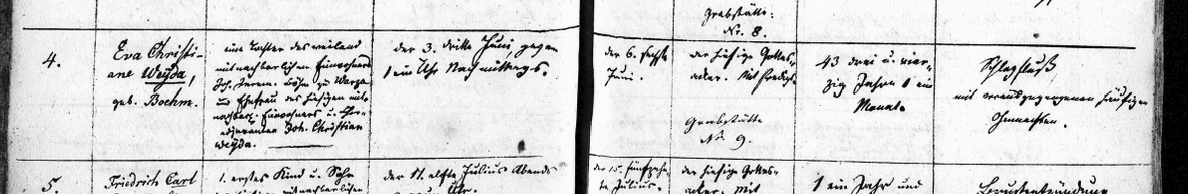 Grabstätte:
No. 8.
4.
Eva Christi-
ane Weyda,
geb. Boehm.
eine Tochter des weiland
mitnachbarlichen Einwohners
Joh. Böhm zu
Ehefrau des hiesigen mit-
nachbarl. Einwohners u.
Joh. Christian
Weyda.
der 3. dritte Juni, gegen
1 ein Uhr Nachmittags.
der 6. sechste
Juni.
der hiesige Gottes-
acker. Mit Predigt.
Grabstätte
No. 9.
43 drei u. vier-
zig Jahre 1 ein
Monat.
Schlagfluß
mit vorausgegangenen häufigen
Ohnmachten.
5.
Friedrich Carl
1. erstes Kind u. Sohn
mitnachbarlichen
der 11. elfte Julius Abends
Uhr.
der 15. fünfzehn-
te Julius.
der hiesige Gottes-
acker. Mit
1 ein Jahr und